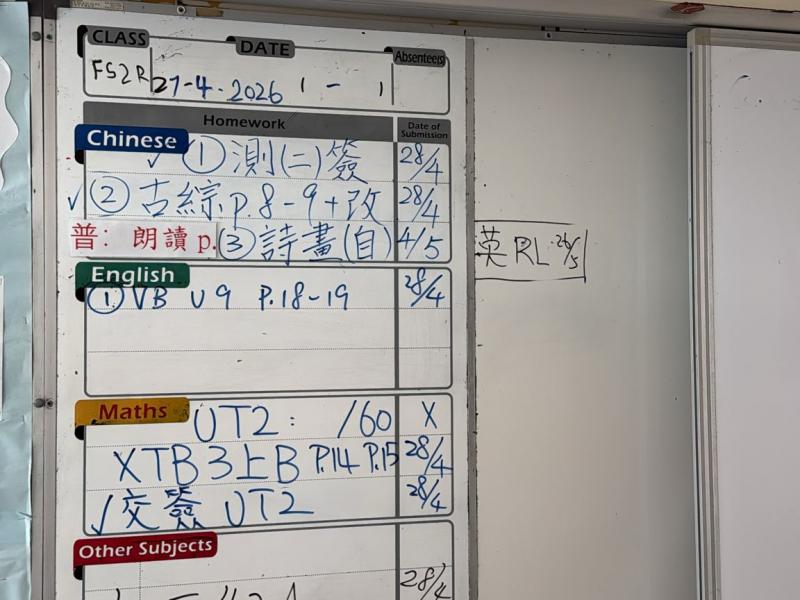 CLASS DATE Absentee(s)
FS2R 27-4-2026 1 - 1
Homework Date of Submission
Chinese
✓ ① 測(二)簽 28/4
✓ ② 古綜 p.8-9+改 28/4
普：朗讀 p. ③ 詩畫(自) 4/5
英 RL 26/5
English
① VB U9 P.18-19 28/4
Maths
UT2: /60 X
XTB3上B P.14 P.15 28/4
✓ 交簽 UT2 28/4
Other Subjects
28/4